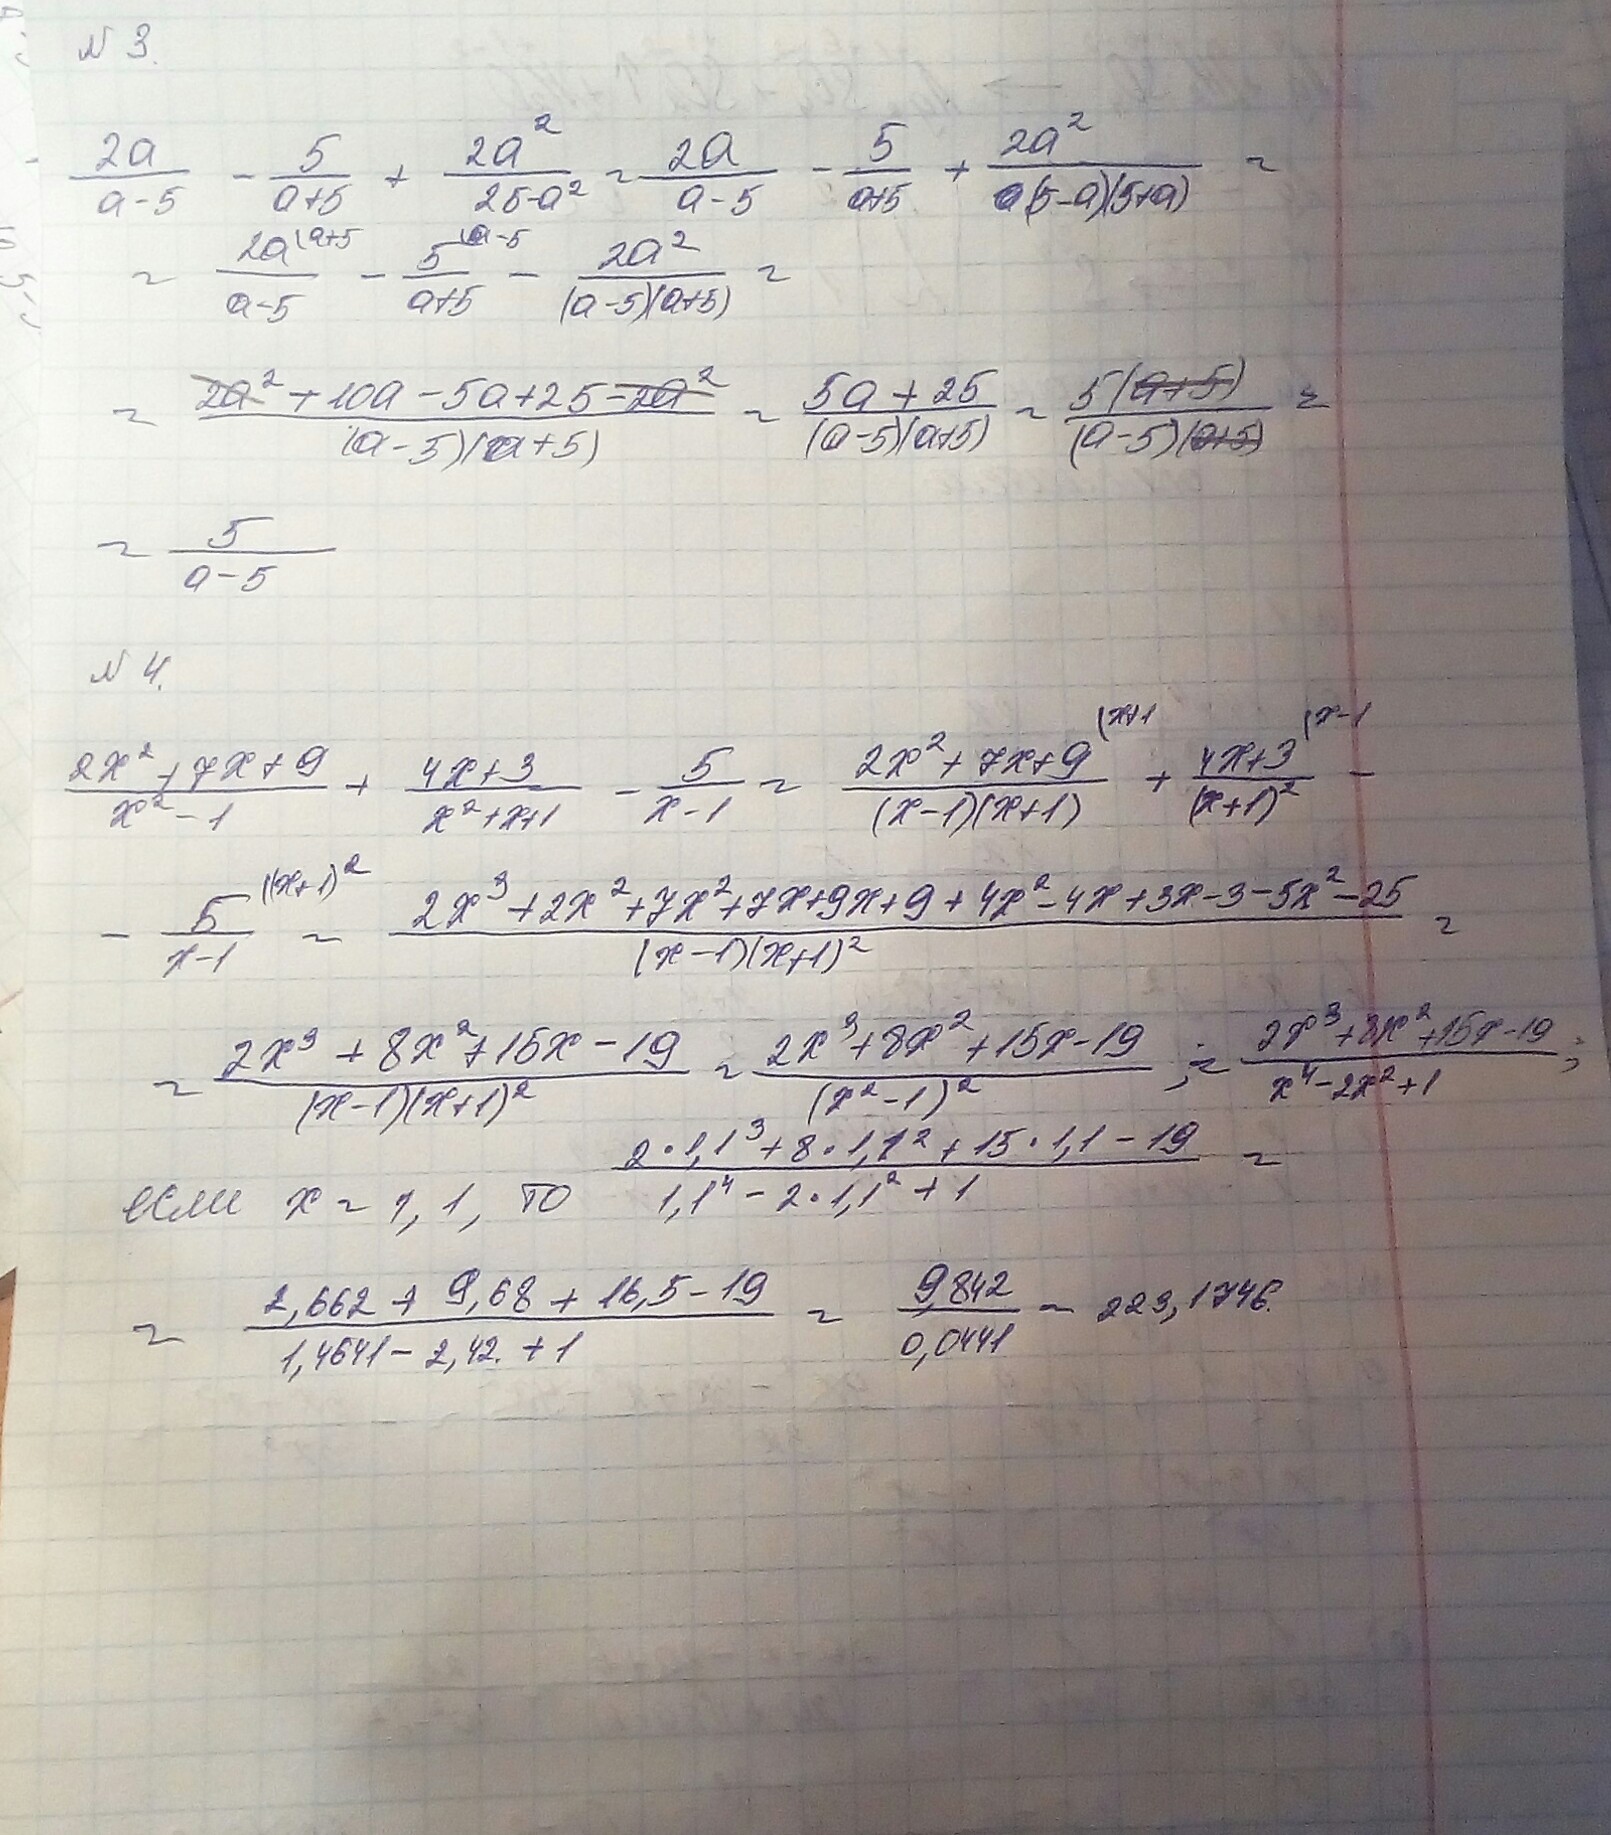 N 3.
2a/(a-5) - 5/(a+5) + 2a²/(25-a²) = 2a/(a-5) - 5/(a+5) + 2a²/((5-a)(5+a)) =
= 2a^(a+5/(a-5) - 5^(a-5/(a+5) - 2a²/((a-5)(a+5)) =
= (2a² + 10a - 5a + 25 - 2a²)/((a-5)(a+5)) = (5a + 25)/((a-5)(a+5)) = 5(a+5)/((a-5)(a+5)) =
= 5/(a-5)
N 4.
(2x² + 7x + 9)/(x² - 1) + (4x+3)/(x²+x+1) - 5/(x-1) = (2x² + 7x + 9)^(x+1/((x-1)(x+1)) + (4x+3)^(x-1/(x+1)² -
- 5^((x+1)²/(x-1) = (2x³ + 2x² + 7x² + 7x + 9x + 9 + 4x² - 4x + 3x - 3 - 5x² - 25)/((x-1)(x+1)²) =
= (2x³ + 8x² + 15x - 19)/((x-1)(x+1)²) = (2x³ + 8x² + 15x - 19)/(x²-1)² ; = (2x³ + 8x² + 15x - 19)/(x⁴ - 2x² + 1) ;
если x = 1,1, то (2·1,1³ + 8·1,1² + 15·1,1 - 19)/(1,1⁴ - 2·1,1² + 1) =
= (2,662 + 9,68 + 16,5 - 19)/(1,4641 - 2,42 + 1) = 9,842/0,0441 = 223,1746.